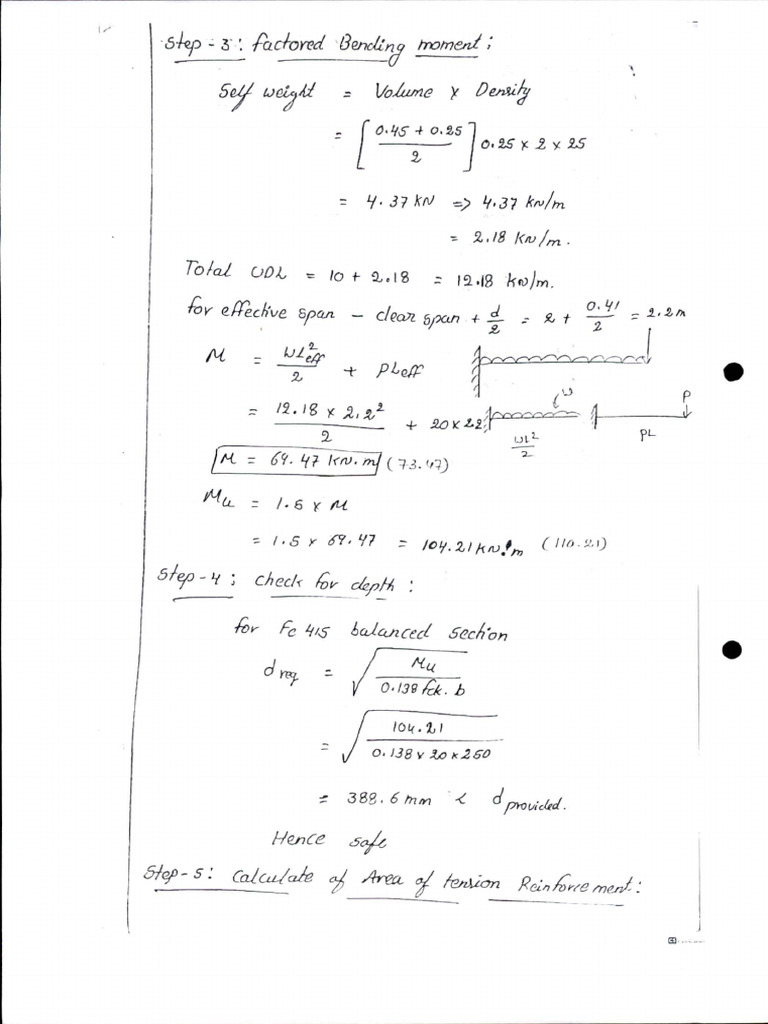 Step - 3 : factored Bending moment ;
Self weight = Volume x Density
= [ (0.45 + 0.25) / 2 ] 0.25 x 2 x 25
= 4.37 KN => 4.37 KN/m
= 2.18 KN/m.
Total UDL = 10 + 2.18 = 12.18 KN/m.
for effective span - clear span + d/2 = 2 + 0.41/2 = 2.2 m
M = WL²eff / 2 + PLeff
= 12.18 x 2.2² / 2 + 20 x 2.2
W P
WL²/2 PL
M = 69.47 KN.m (73.47)
Mu = 1.5 x M
= 1.5 x 69.47 = 104.21 KN.m (110.21)
Step-4 ; check for depth :
for Fe 415 balanced section
d req = √( Mu / 0.138 fck. b )
= √( 104.21 / 0.138 x 20 x 250 )
= 388.6 mm < d provided.
Hence safe
Step-5 : Calculate of Area of tension Reinforcement :